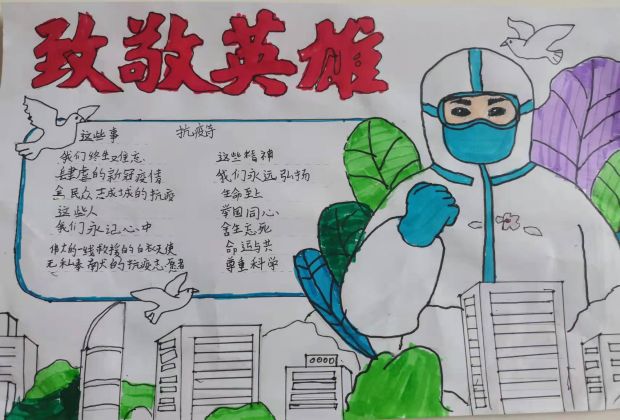 致敬英雄
这些事 抗疫诗
我们终生难忘
肆虐的新冠疫情
全民众志成城的抗疫
这些人
我们永记心中
伟大的一线救援的白衣天使
无私奉献的抗疫志愿者
这些精神
我们永远弘扬
生命至上
举国同心
舍生忘死
命运与共
尊重科学